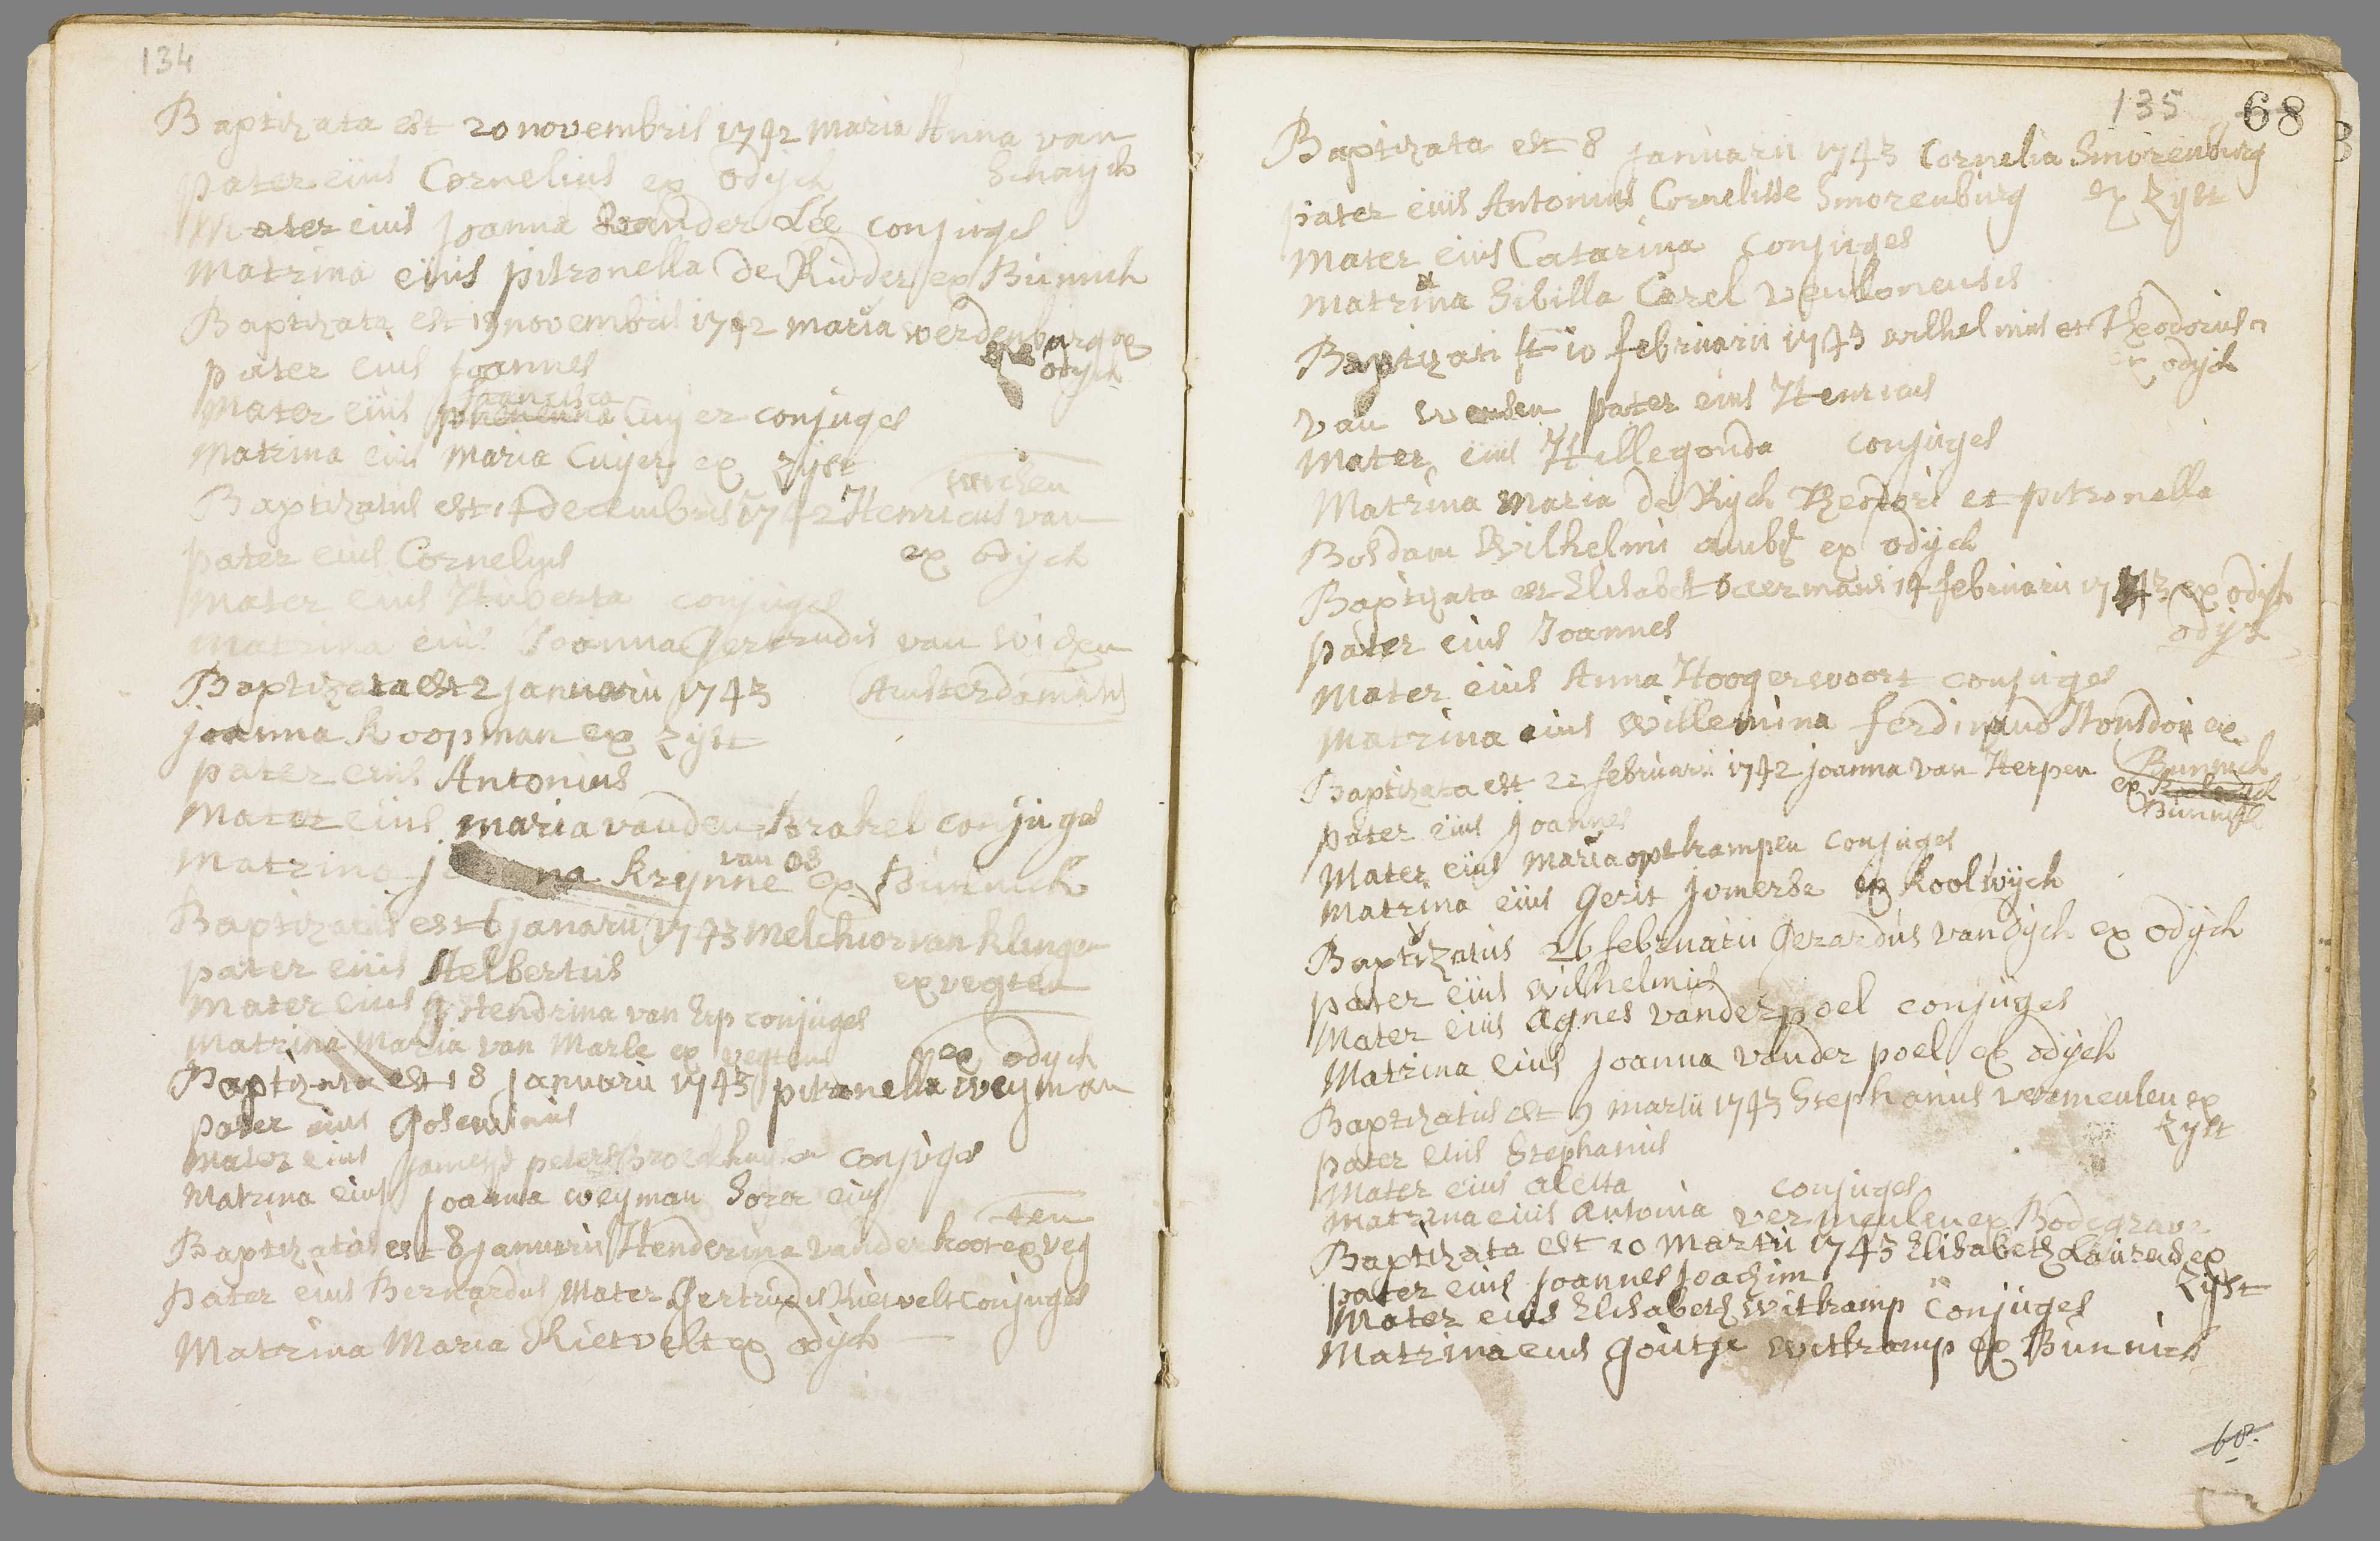 134
Baptizata est 20 novembris 1742 Maria Anna van
Schaijck
pater eius Cornelius ex Odijck
Mater eius Joanna vander Lée conjuges
Matrina eius pitronella de Ridder ex Bunnick
Baptizata est 19 novembris 1742 maria werdenburg ex
odijck
pater eius Joannes
francisca
Mater eius Cuijer conjuges
Matrina eius Maria Cuijer ex Zijst
wichen
Baptizatus est 14 decembris 1742 Henricus van
pater eius Cornelius ex odijck
Mater eius Huberta conjuges
Matrina eius Joanna Gertrudis van Wichen
Baptizata est 2 januarii 1743 Amsterdamensis
joanna koopman ex Zijst
pater eius Antonius
Mater eius maria vanden Brakel conjuges
van os
Matrina krijnne ex Bunnick
Baptizatus est 6 janarii 1743 Melchior van klingen
pater eius Helbertus ex vegten
Mater eius Hendrina van Erp conjuges
Matrina Maria van Marle ex vegten
ex odijck
Baptizata est 18 januarii 1743 pitronella weijman
pater eius Goswinus
Mater eius peters Broekhuisen conjuges
Matrina eius joanna weijman soror eius
ten
Baptizata est 8 januarii Henderina vander koot ex veg
pater eius Bernardus Mater Gertrudis Rietvelt conjuges
Matrina Maria Rietvelt ex odijck
135 68
Baptizata est 8 januarii 1743 Cornelia Smorenburg
pater eius Antonius Cornelisse Smorenburg ex Zijst
Mater eius Catarina conjuges
Matrina Sibilla Carel
Baptizati st 10 februarii 1743 wilhelmus et Theodorus
ex odijck
van pater eius Henricus
Mater eius Hillegonda conjuges
Matrina Maria de Rijck Theodori et pitronella
Bosdam Wilhelmi ambe ex odijck
Baptizata est Elisabet ocermans 14 februarii 1743 ex odijck
odijck
pater eius Joannes
Mater eius Anna Hoogervoort conjuges
Matrina eius willemina ferdinand ex
Bunnick
Baptizata est 22 februarii 1742 joanna van Herpen ex
Bunnick
pater eius Joannes
Mater eius Maria opekampen conjuges
Matrina eius Gerit jomerse ex koolwijck
Baptizatus 26 februarii Gerardus van dijck ex odijck
pater eius wilhelmus
Mater eius agnes vander poel conjuges
Matrina eius joanna vander poel ex odijck
Baptizatus est 9 martii 1743 Stephanus vermeulen ex
Zijst
pater eius Stephanus
Mater eius aletta conjuges
Matrina eius antonia vermeulen ex Bodegrave
Baptizata est 10 Martii 1743 Elisabeth Laurens ex
Zijst
pater eius joannes joachim
Mater eius Elisabeth witkamp conjuges
Matrina eius Goutje witkamp ex Bunnick
68.